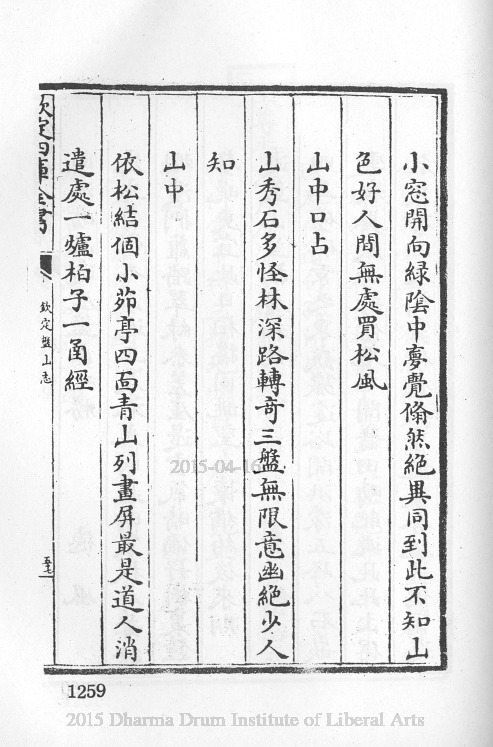 小窓開向緑陰中夢覺翛然絶異同到此不知山
色好人間無處買松風
山中口占
山秀石多怪林深路轉竒三盤無限意幽絶少人
知
山中
依松結個小茆亭四面青山列畫屏最是道人消
遣處一爐柏子一函經
欽定四庫全書
欽定盤山志
2015-04-16
1259
2015 Dharma Drum Institute of Liberal Arts